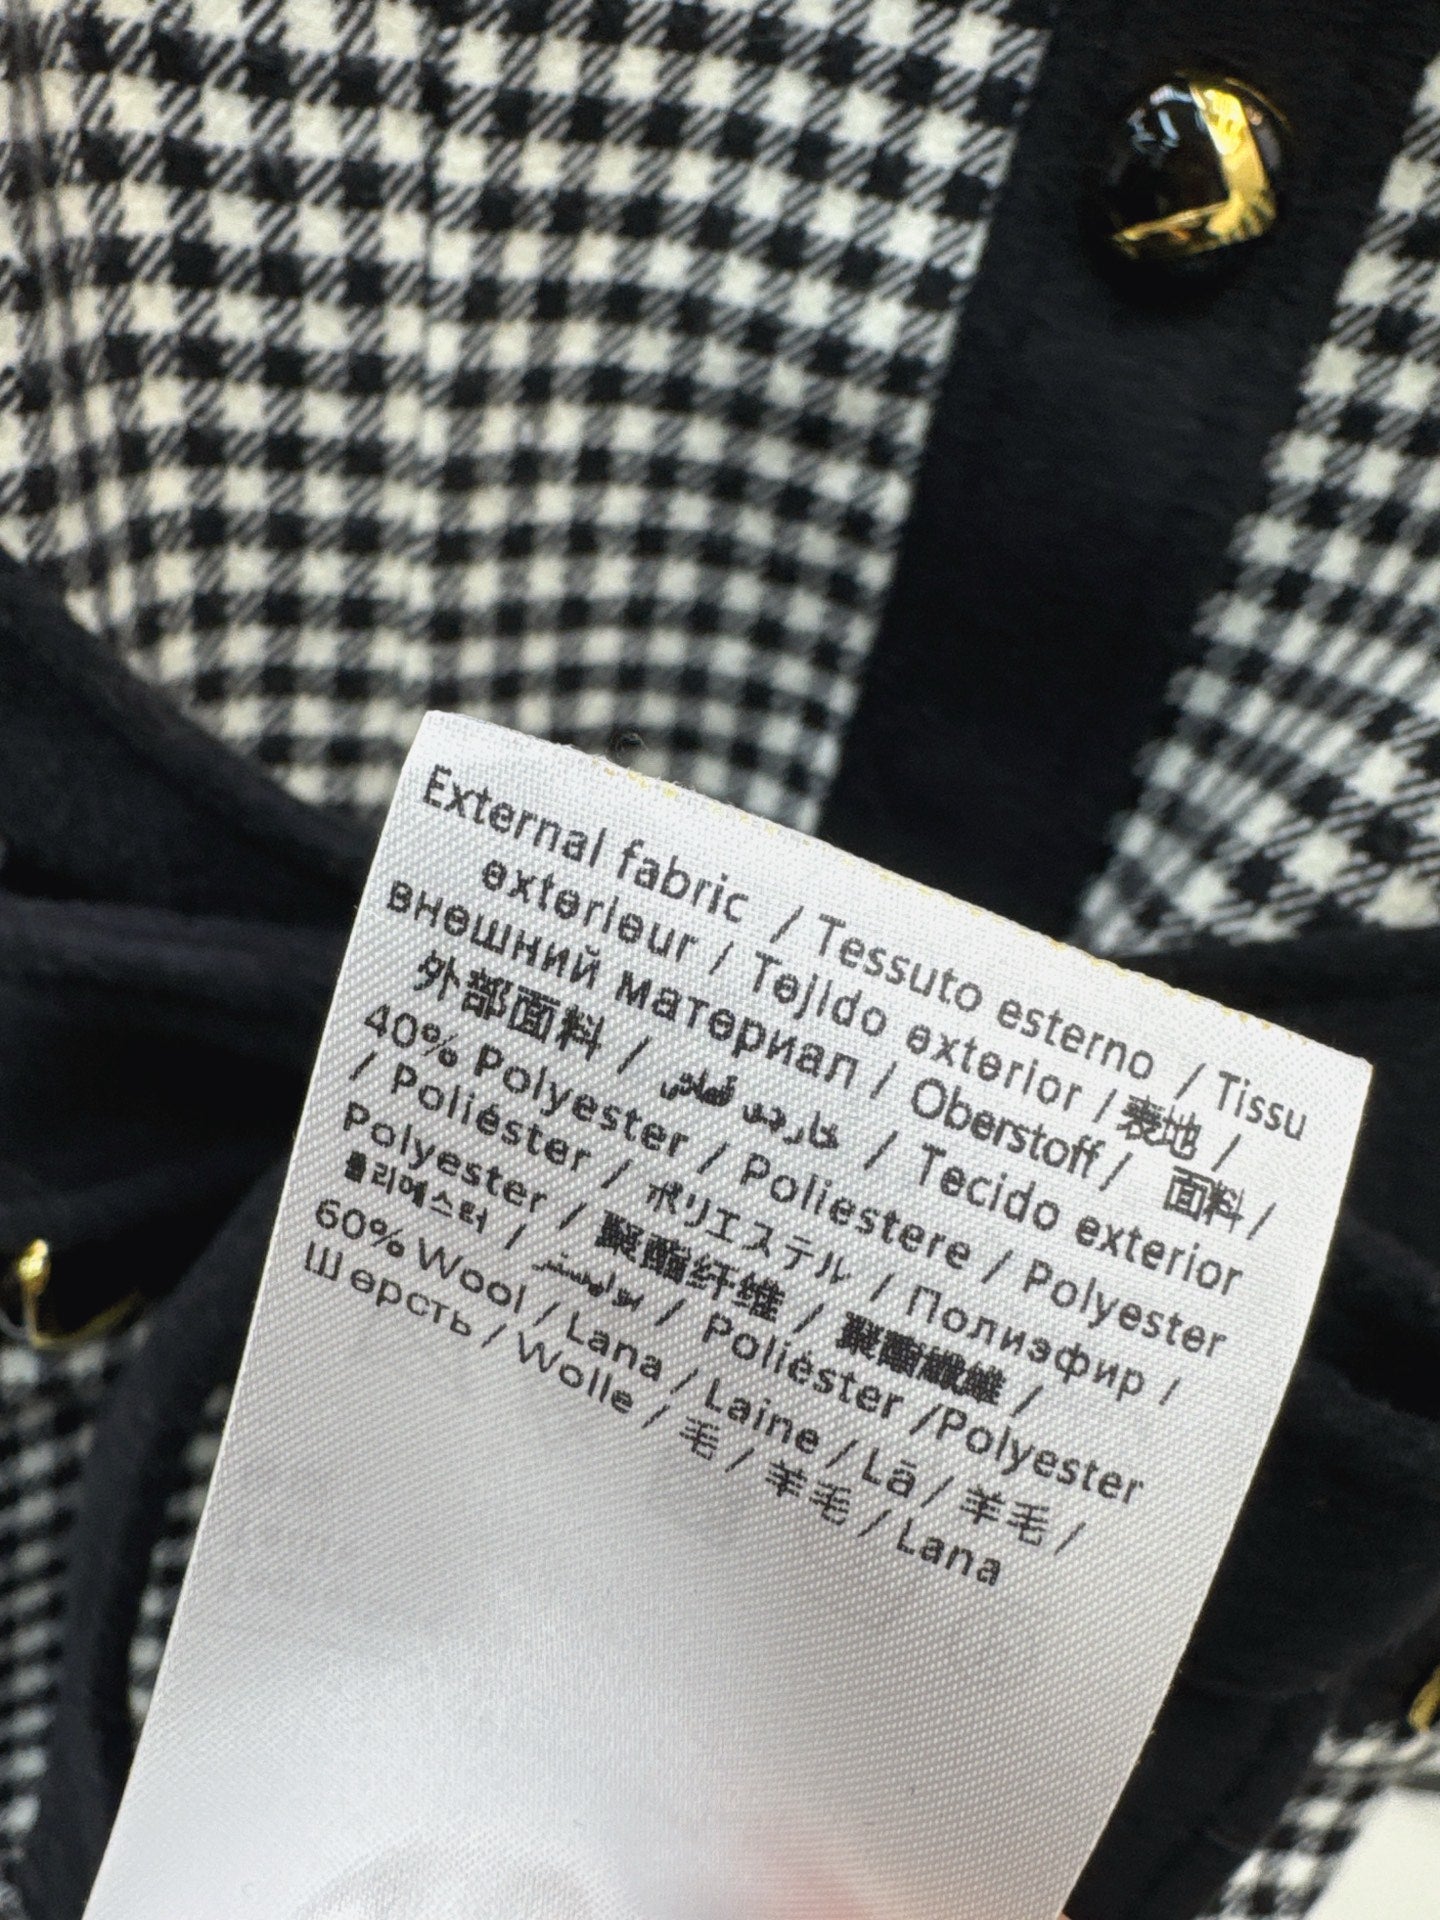 External fabric / Tessuto esterno / Tissu
exterieur / Tejido exterior / 表地 /
внешний материал / Oberstoff / 面料 /
外部面料 / / Tecido exterior
40% Polyester / Poliestere / Polyester
/ Poliéster / ポリエステル / Полиэфир /
Polyester / 聚酯纤维 / 聚酯纖維 /
폴리에스터 / / Poliéster /Polyester
60% Wool / Lana / Laine / Lã / 羊毛 /
Шерсть / Wolle / 毛 / 羊毛 / Lana